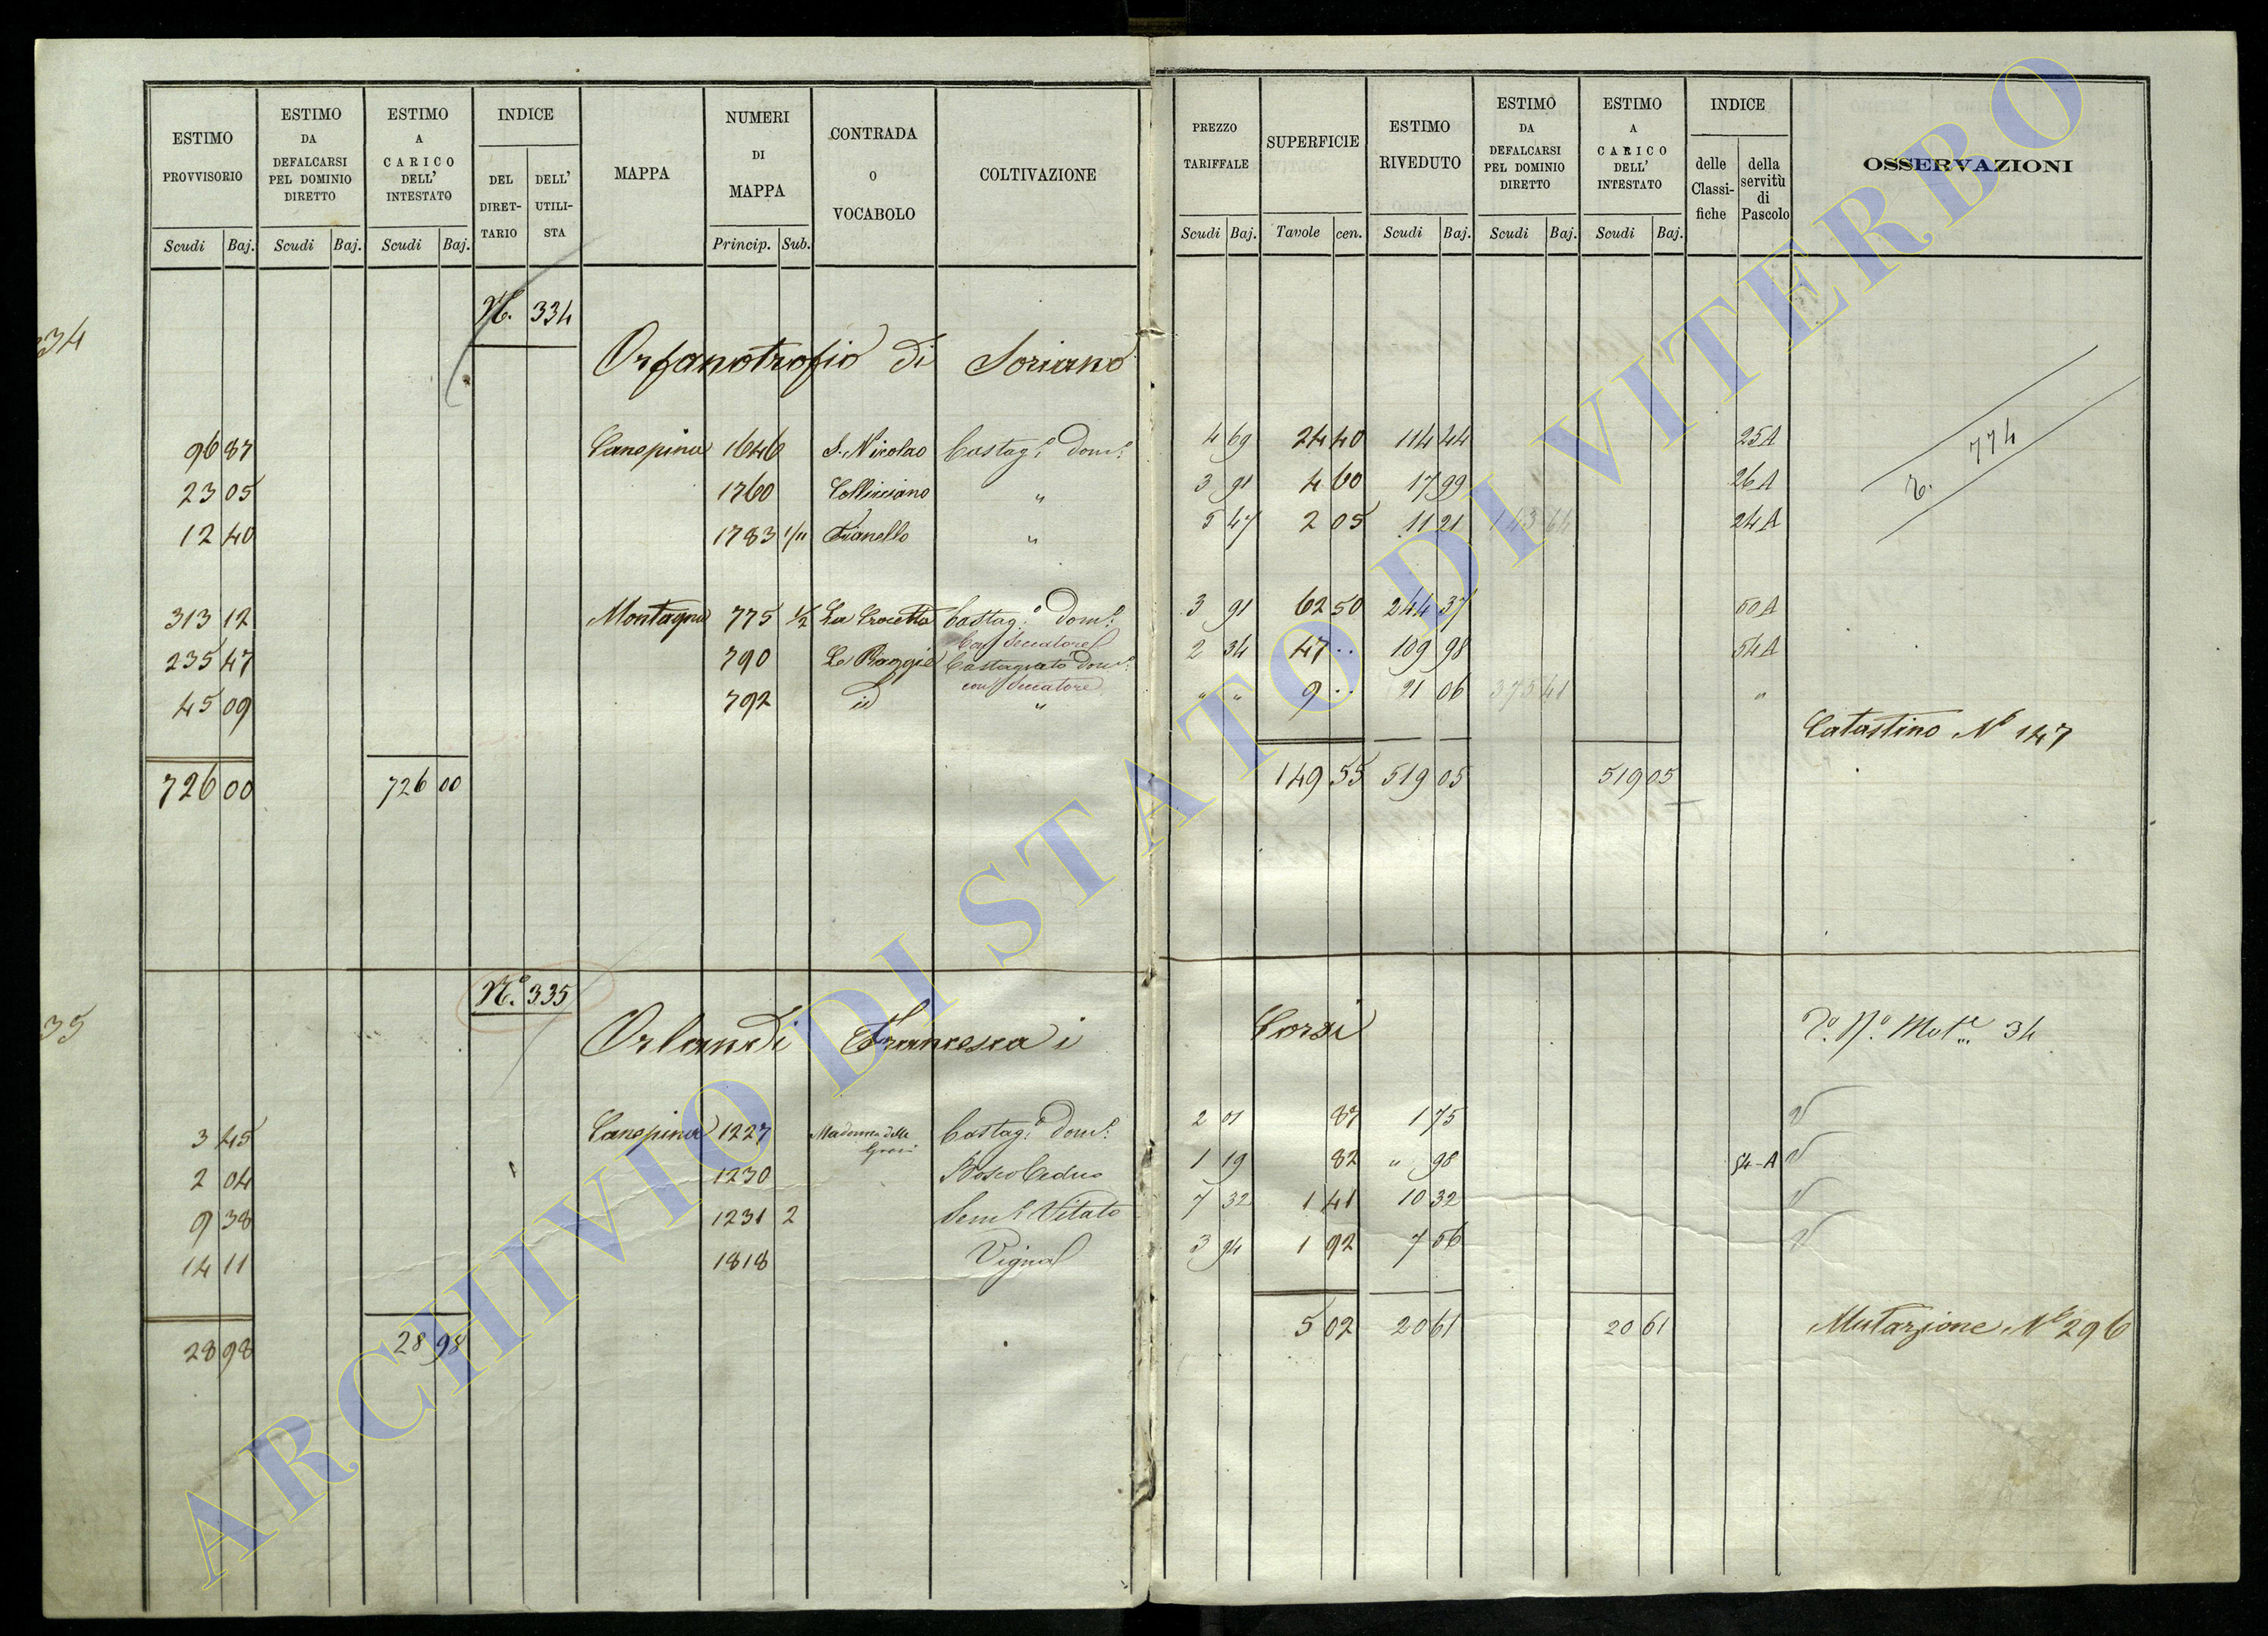 ESTIMO PROVVISORIO Scudi Baj.
ESTIMO DA DEFALCARSI PEL DOMINIO DIRETTO Scudi Baj.
ESTIMO A CARICO DELL' INTESTATO Scudi Baj.
INDICE DEL DIRET-TARIO DELL' UTILI-STA
MAPPA
NUMERI DI MAPPA Princip. Sub.
CONTRADA O VOCABOLO
COLTIVAZIONE
PREZZO TARIFFALE Scudi Baj.
SUPERFICIE Tavole cen.
ESTIMO RIVEDUTO Scudi Baj.
ESTIMO DA DEFALCARSI PEL DOMINIO DIRETTO Scudi Baj.
ESTIMO A CARICO DELL' INTESTATO Scudi Baj.
INDICE delle Classi-fiche della servitù di Pascolo
OSSERVAZIONI
334
N. 334
Orfanotrofio di Soriano
96 87 Canepina 1646 S. Nicolao Castag.o dom.o 4 69 24 40 114 44 25A
774
23 05 1760 Collicciano " 3 91 4 60 17 99 26A
12 40 1783 1/11 Fianello " 5 47 2 05 11 21 143 64 24A
313 12 Montagna 775 1/2 La Crocetta Castag.o dom.o 3 91 62 50 244 37 50A
Con Seccatore
235 47 790 Le Roggie Castagneto dom.o 2 34 47 .. 109 98 54A
con Seccatore
45 09 792 id " " " 9 .. 21 06 375 41 "
Catastino N° 147
726 00 726 00 149 55 519 05 519 05
35
N.° 335
Orlandi Francesca in Corsi
V.° N.° Mut.e 34
3 45 Canepina 1227 Madonna delle Castag.o dom.o 2 01 87 1 75
2 04 1230 Bosco Ceduo 1 19 82 " 98 54-A
9 38 1231 2 Sem.o Vitato 7 32 1 41 10 32
14 11 1818 Vigna 3 94 1 92 7 56
28 98 28 98 5 02 20 61 20 61 Mutazione N° 296
ARCHIVIO DI STATO DI VITERBO